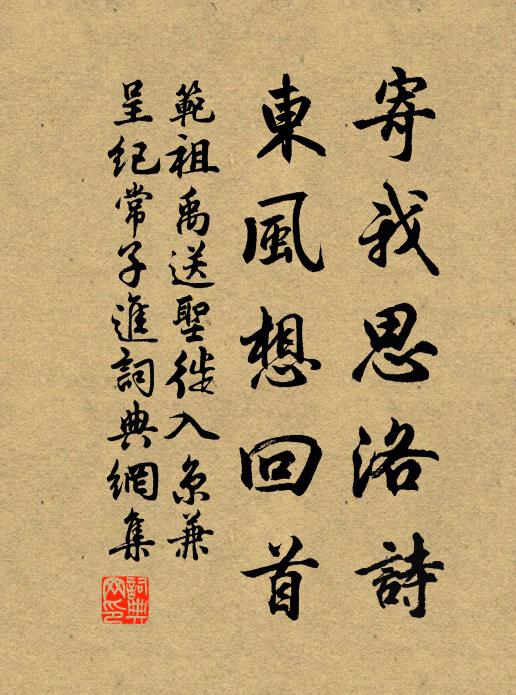 寄我思洛詩
東風想回首
範祖禹送聖徙入京兼
呈紀常子進詞典網集
詞典網印